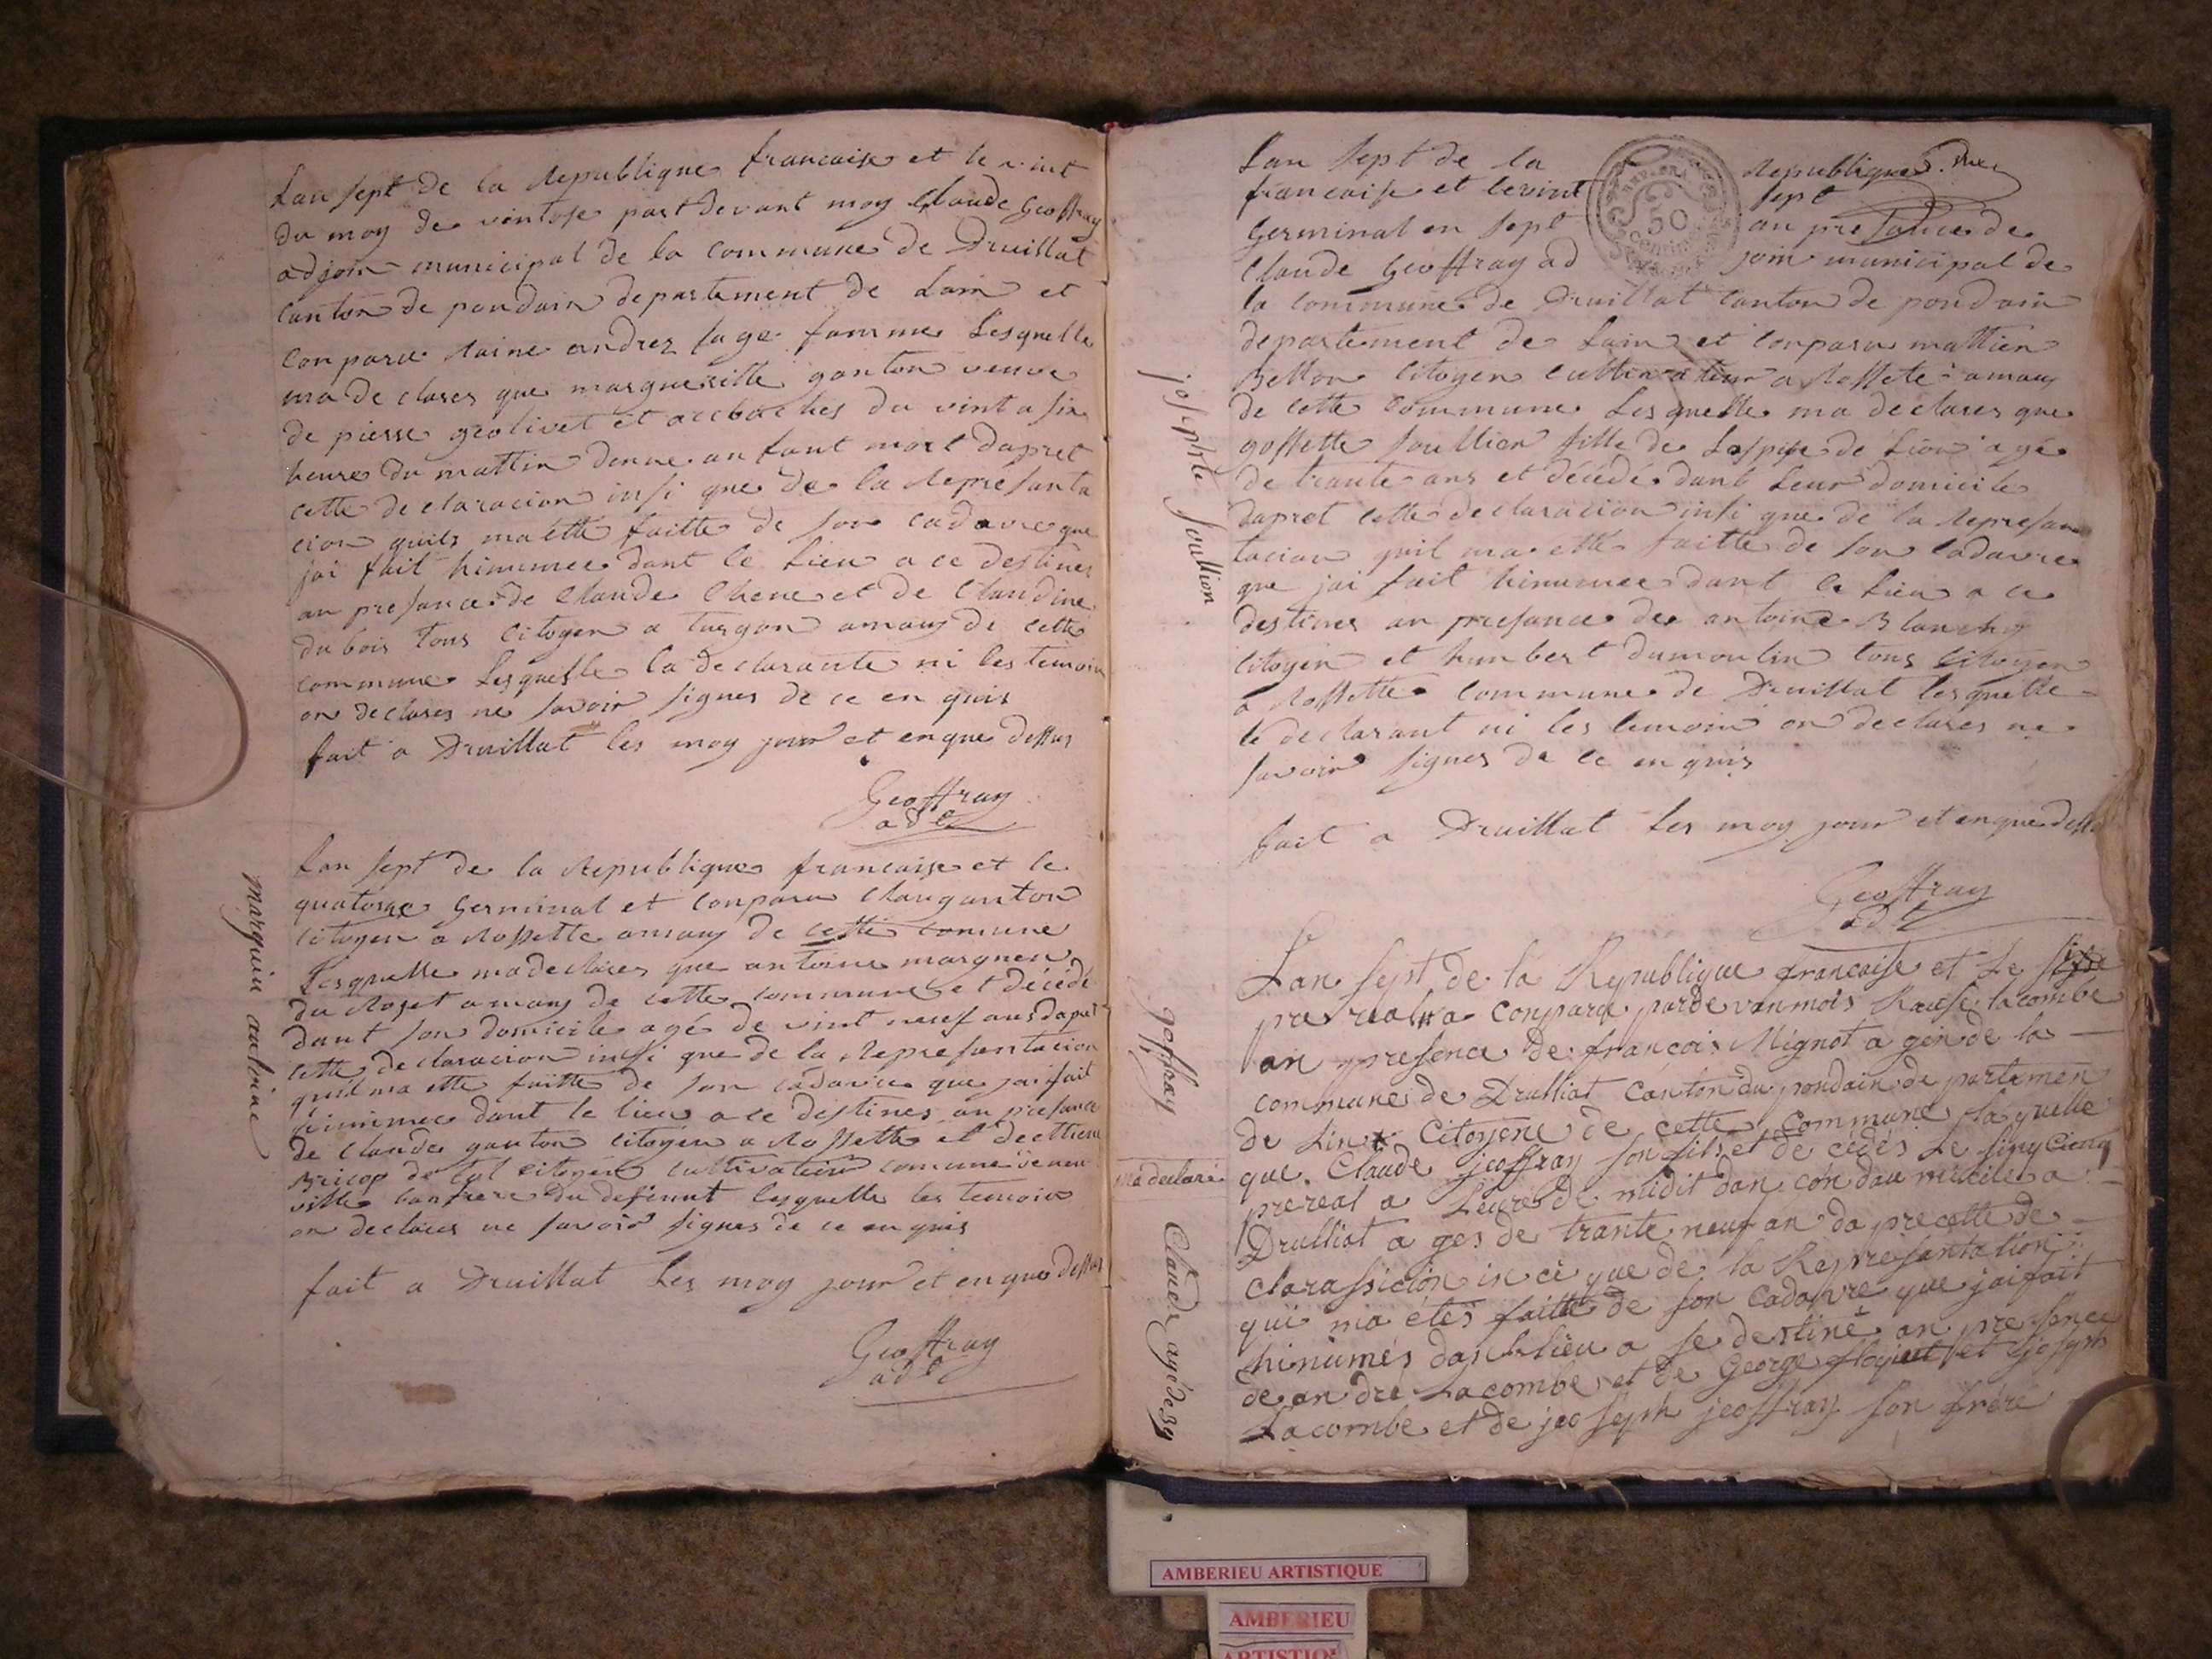 Lan sept de la republique francaise et le vint
du moy de vintose part devant moy Claude Geoffray
adjoin municipal de la commune de Druillat
canton de pondain departement de Lain et
conparu raine andrez sage famme Lesquelle
ma declares que margueritte ganton veuve
de pierre geolivet et accouches du vint a six
heures du mattin donne un fant mort dapret
cette declaracion insi que de la represanta
cion quils ma ette faitte de son cadavre que
jai fait hinumee dant le Lieu a ce destines
an presance de Claude Chene et de Claudine
dubois tous citoyen a turgon amaux de cette
commune Lesquelle la declarante ni les temoin
on declares ne savoir signes de ce en quis
fait a Druillat les moy jour et en que dessus
Geoffray
adt
Lan sept de la republique francaise et le
quatorze Germinal et conparu Clau ganton
citoyen a rossette amaux de cette comune
Lesquelle ma declares que antoine marguen
du roset amaux de cette commune et décédé
dant son domicile agé de vint neuf ans dapret
cette declaracion insi que de la represantacion
quil ma ette faitte de son cadavre que jai fait
hinumee dant le lieu a ce destines an presance
de Claude ganton citoyen a rossette et de ettiene
citoyen cultivateur comune de neu
ville du defunt lesquelle les temoins
on declares ne savoir signes de ce en quis
fait a Druillat Les moy jour et en que dessus
Geoffray
adt
marguin antoine
Lan sept de la republique
francaise et le vint sept
Germinal en sept an presance de
Claude Geoffray ad join municipal de
50
centimes
la commune de Druillat canton de pondain
departement de Lain et conparu mattieu
Bellon citoyen cultivateur a rossete amaux
de cette commune Lesquelle ma declares que
gossette soullier fille de Lospise de Lion agé
de trante ans et décédé dant Leur domicile
dapret cette declaracion insi que de la represan
tacion quil ma ette faitte de son cadavre
que jai fait hinumee dant le Lieu a ce
destines an presance de antoine Blanchy
citoyen et humbert dumoulin tous citoyen
a rossette commune de Druillat lesquelle
le declarant ni les temoin on declares ne
savoir signes de ce en quis
fait a Druillat Les moy jour et en que dessu
Geoffray
adt
josephte soullion
Lan sept de la Republique francaise et Le size
prereal a conparu pardevan mois lacombe
an presence de françois Mignot a gen de la
commune de Drulliat canton du pondain de partemen
de Lin citoyene de cette commune laquelle
ma declaré que Claude jeoffray son fils et de cédés Le cienq
prereal a Leure de midit dan con dau micile a
Drulliat a ges de trante neuf an da precette de
clarassicion in ci que de la Represantation
qui ma étés faitte de son Cadavre que jai fait
hinumés dans le lieu a se destiné an presence
de an dré Lacombe et de George et joseph
Lacombe et de jeo seph jeoffray son frére
goffray
Claude agé de 39
AMBERIEU ARTISTIQUE
AMBERIEU
ARTISTIQUE